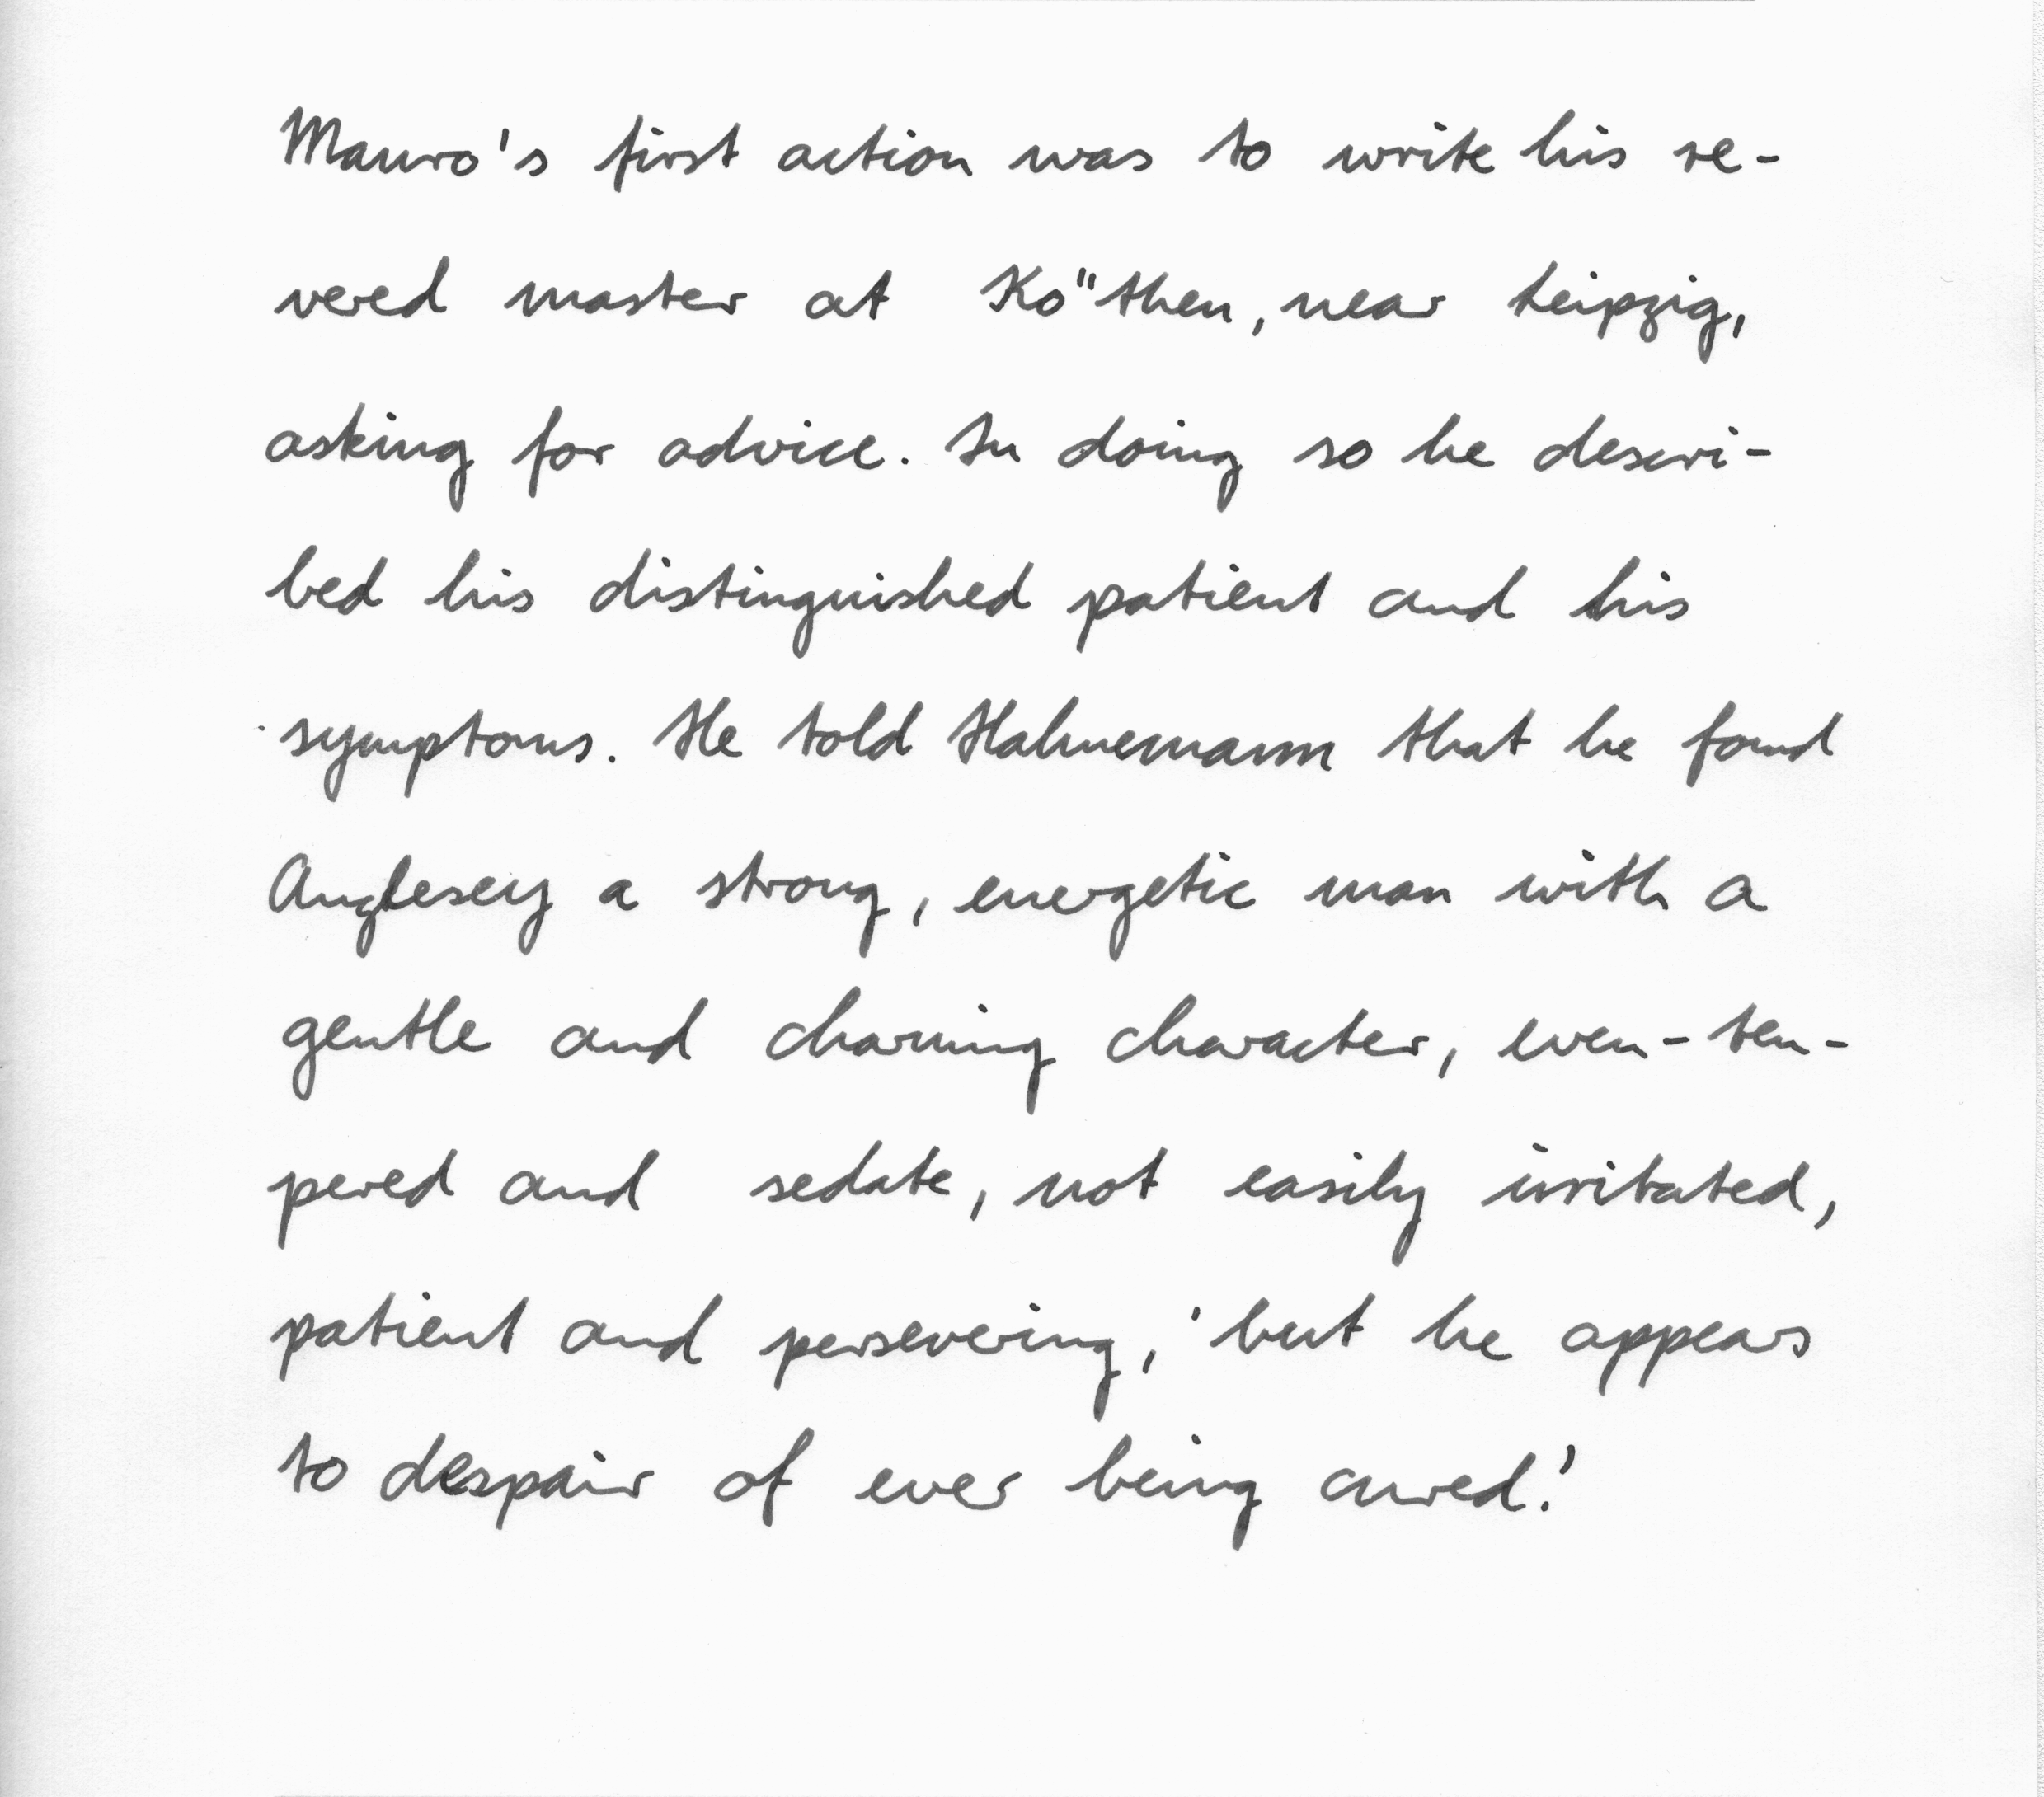 Mauro's first action was to write his re-
vered master at Ko"then, near Leipzig,
asking for advice. In doing so he descri-
bed his distinguished patient and his
symptoms. He told Hahnemann that he found
Anglesey a strong, energetic man with a
gentle and charming character, even-tem-
pered and sedate, not easily irritated,
patient and persevering, 'but he appears
to despair of ever being cured.'